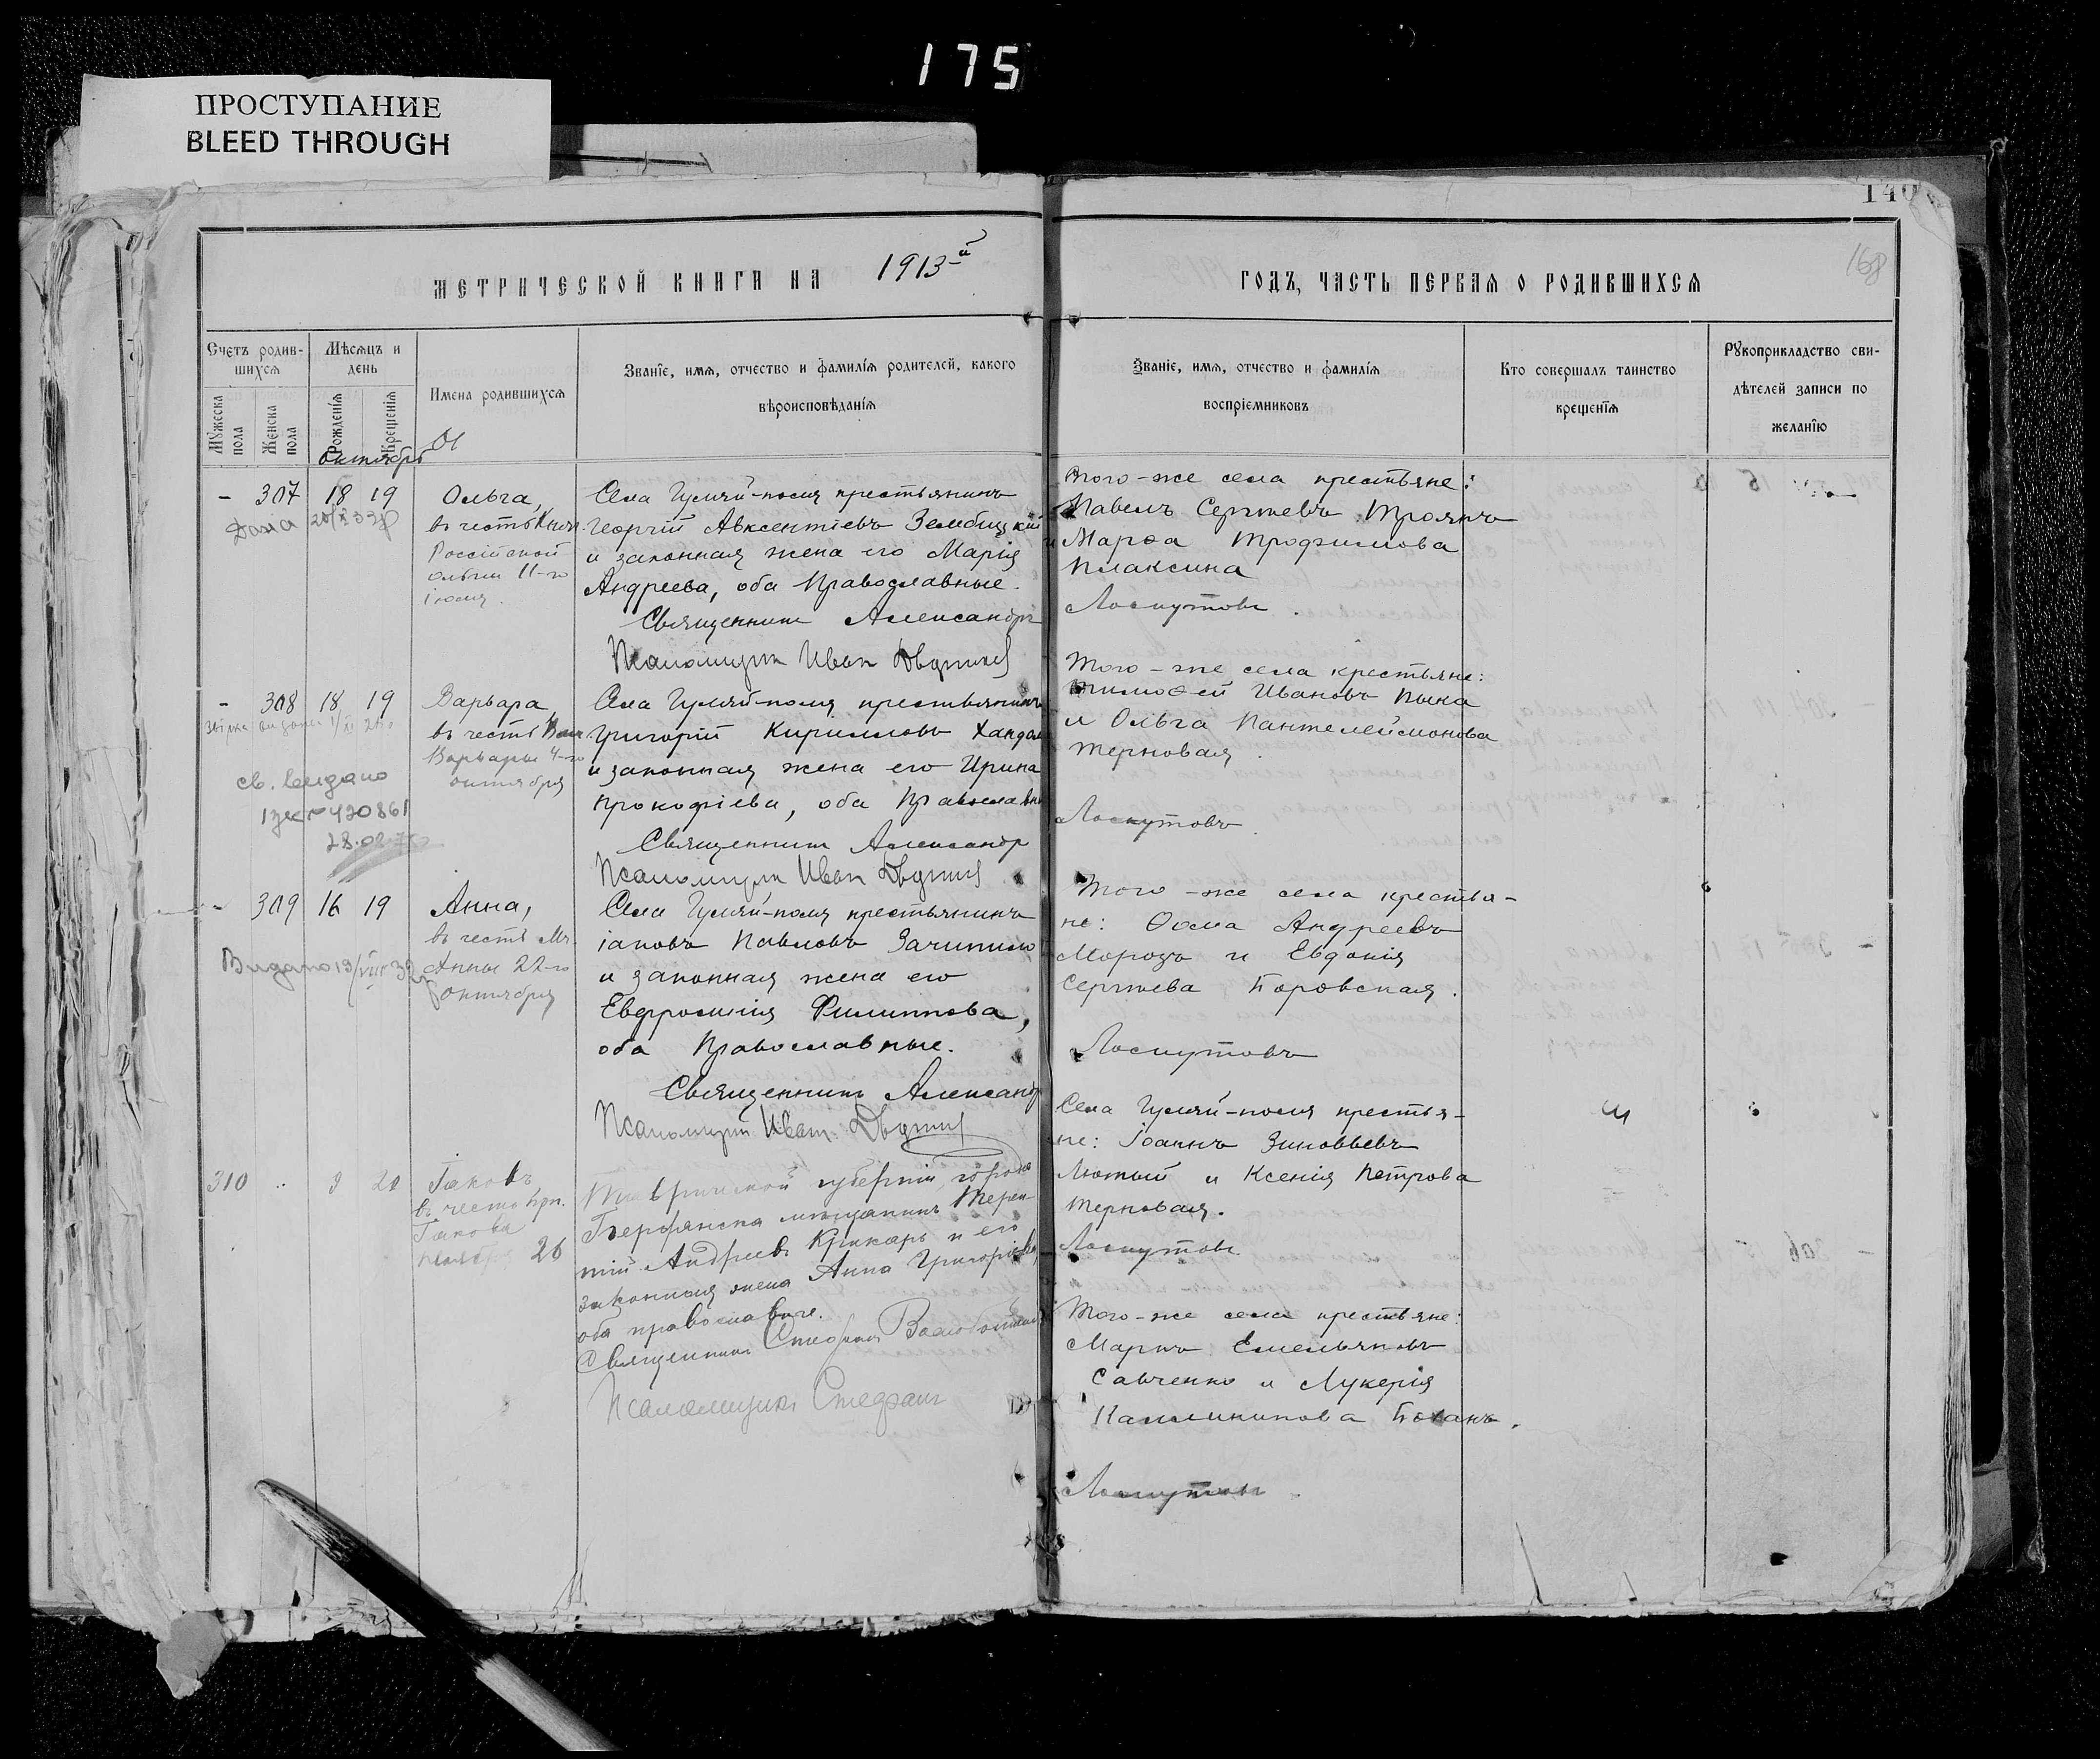 175
ПРОСТУПАНИЕ
BLEED THROUGH
140
168
МЕТРИЧЕСКОЙ КНИГИ НА 1913-й
ГОДЪ, ЧАСТЬ ПЕРВАЯ О РОДИВШИХСЯ
Счетъ родив-
шихся
Мѣсяцъ и
день
Мужеска
пола
Женска
пола
Рожденія
Крещенія
Имена родившихся
Званіе, имя, отчество и фамилія родителей, какого
вѣроисповѣданія
Званіе, имя, отчество и фамилія
воспріемниковъ
Кто совершалъ таинство
крещенія
Рукоприкладство сви-
дѣтелей записи по
желанію
Октябрь
- 307 18 19
Ольга,
въ честь Княг.
Россійской
Ольги 11-го
іюля.
Села Гуляй-поля крестьянинъ
Георгій Авксентіевъ Зембицкій
и законная жена его Марія
Андреева, оба Православные.
Священникъ Александръ
Псаломщик Иван
Того-же села крестьяне:
Павелъ Сергѣевъ Троянъ
и Марѳа Трофимова
Плаксина
Лоскутовъ.
- 308 18 19
св. видано
420861
28.02
Варвара,
въ честь Вел
Варвары 4-го
октября
Села Гуляй-поля крестьянинъ
Григорій Кирилловъ
и законная жена его Ирина
Прокофіева, оба Православн
Священникъ Александр
Псаломщик Иван
Того-же села крестьяне:
Тимоѳей Ивановъ Пыка
и Ольга Пантелеймонова
Терновая.
Лоскутовъ.
- 309 16 19
Видано 19/VIII
Анна,
въ честь Мч.
Анны 22-го
октября
Села Гуляй-поля крестьянинъ
Іаковъ Павловъ
и законная жена его
Евфросинія Филиппова,
оба Православные.
Священникъ Александр
Псаломщик Иван
Того-же села крестья-
не: Ѳома Андреевъ
Морозъ и Евдокія
Сергѣева Боровская.
Лоскутовъ
310 .. 9 20
Іаковъ
въ честь прп.
Іакова
ноября 26
Таврической губерніи города
Бердянска мѣщанинъ Терен-
тій Андреевъ и его
законная жена Анна Григоріева
оба православные.
Священникъ Стефанъ
Псаломщикъ Стефанъ
Села Гуляй-поля крестья-
не: Іоаннъ Зиновьевъ
Лютый и Ксенія Петрова
Терновая.
Лоскутовъ.
Того-же села крестьяне:
Маркъ Емельяновъ
Савченко и Лукерія
Каллиникова
Лоскутовъ.